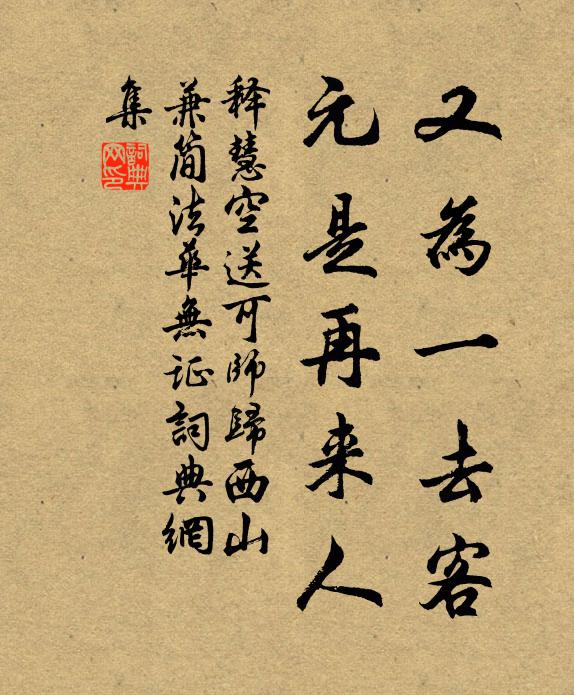 又為一去客
元是再来人
释慧空送可师歸西山
兼简法華無证詞典網
集
詞典網印